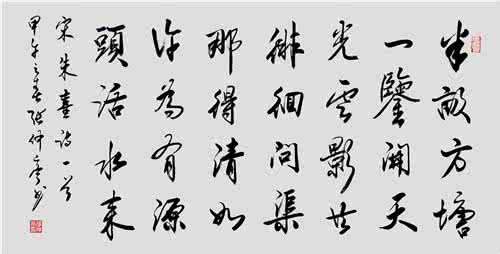 半畝方塘
一鑒開天
光雲影共
徘徊問渠
那得清如
許為有源
頭活水來
宋朱熹詩一首
甲午之春張仲亭書